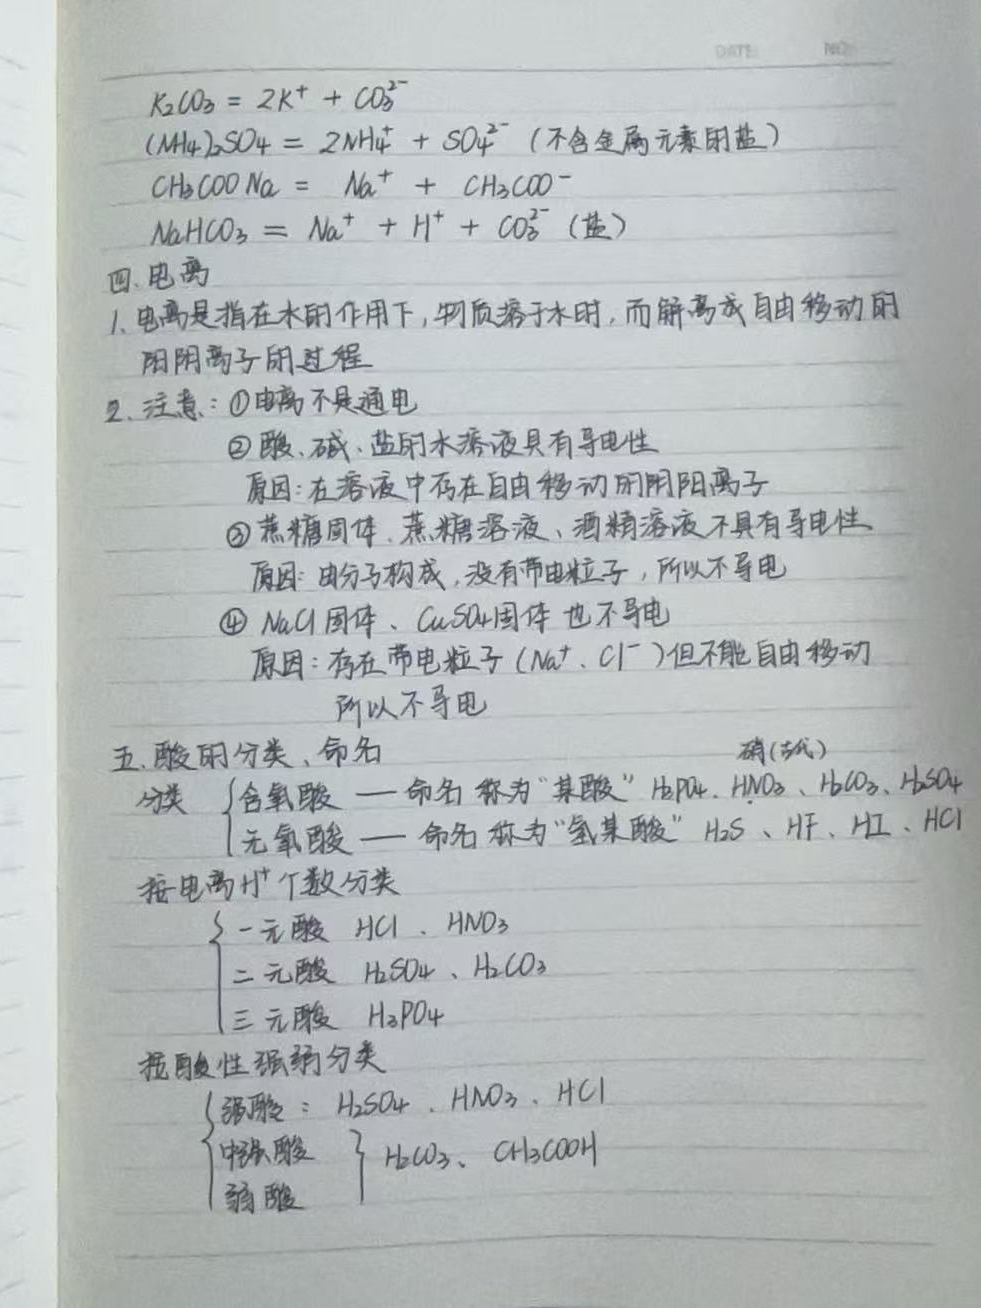 DATE NO
K₂CO₃ = 2K⁺ + CO₃²⁻
(NH₄)₂SO₄ = 2NH₄⁺ + SO₄²⁻ (不含金属元素的盐)
CH₃COONa = Na⁺ + CH₃COO⁻
NaHCO₃ = Na⁺ + H⁺ + CO₃²⁻ (盐)
四、电离
1、电离是指在水的作用下,物质溶于水时,而解离成自由移动的
阳阴离子的过程
2、注意:①电离不是通电
②酸、碱、盐的水溶液具有导电性
原因:在溶液中存在自由移动的阴阳离子
③蔗糖固体、蔗糖溶液、酒精溶液不具有导电性
原因:由分子构成,没有带电粒子,所以不导电
④ NaCl固体、CuSO₄固体也不导电
原因:存在带电粒子(Na⁺、Cl⁻)但不能自由移动
所以不导电
五、酸的分类、命名
硝(古代)
分类 含氧酸 — 命名 称为"某酸" H₂PO₄、HNO₃、H₂CO₃、H₂SO₄
无氧酸 — 命名 称为"氢某酸" H₂S、HF、HI、HCl
按电离H⁺个数分类
一元酸 HCl、HNO₃
二元酸 H₂SO₄、H₂CO₃
三元酸 H₃PO₄
按酸性强弱分类
强酸:H₂SO₄、HNO₃、HCl
中强酸
H₂CO₃、CH₃COOH
弱酸